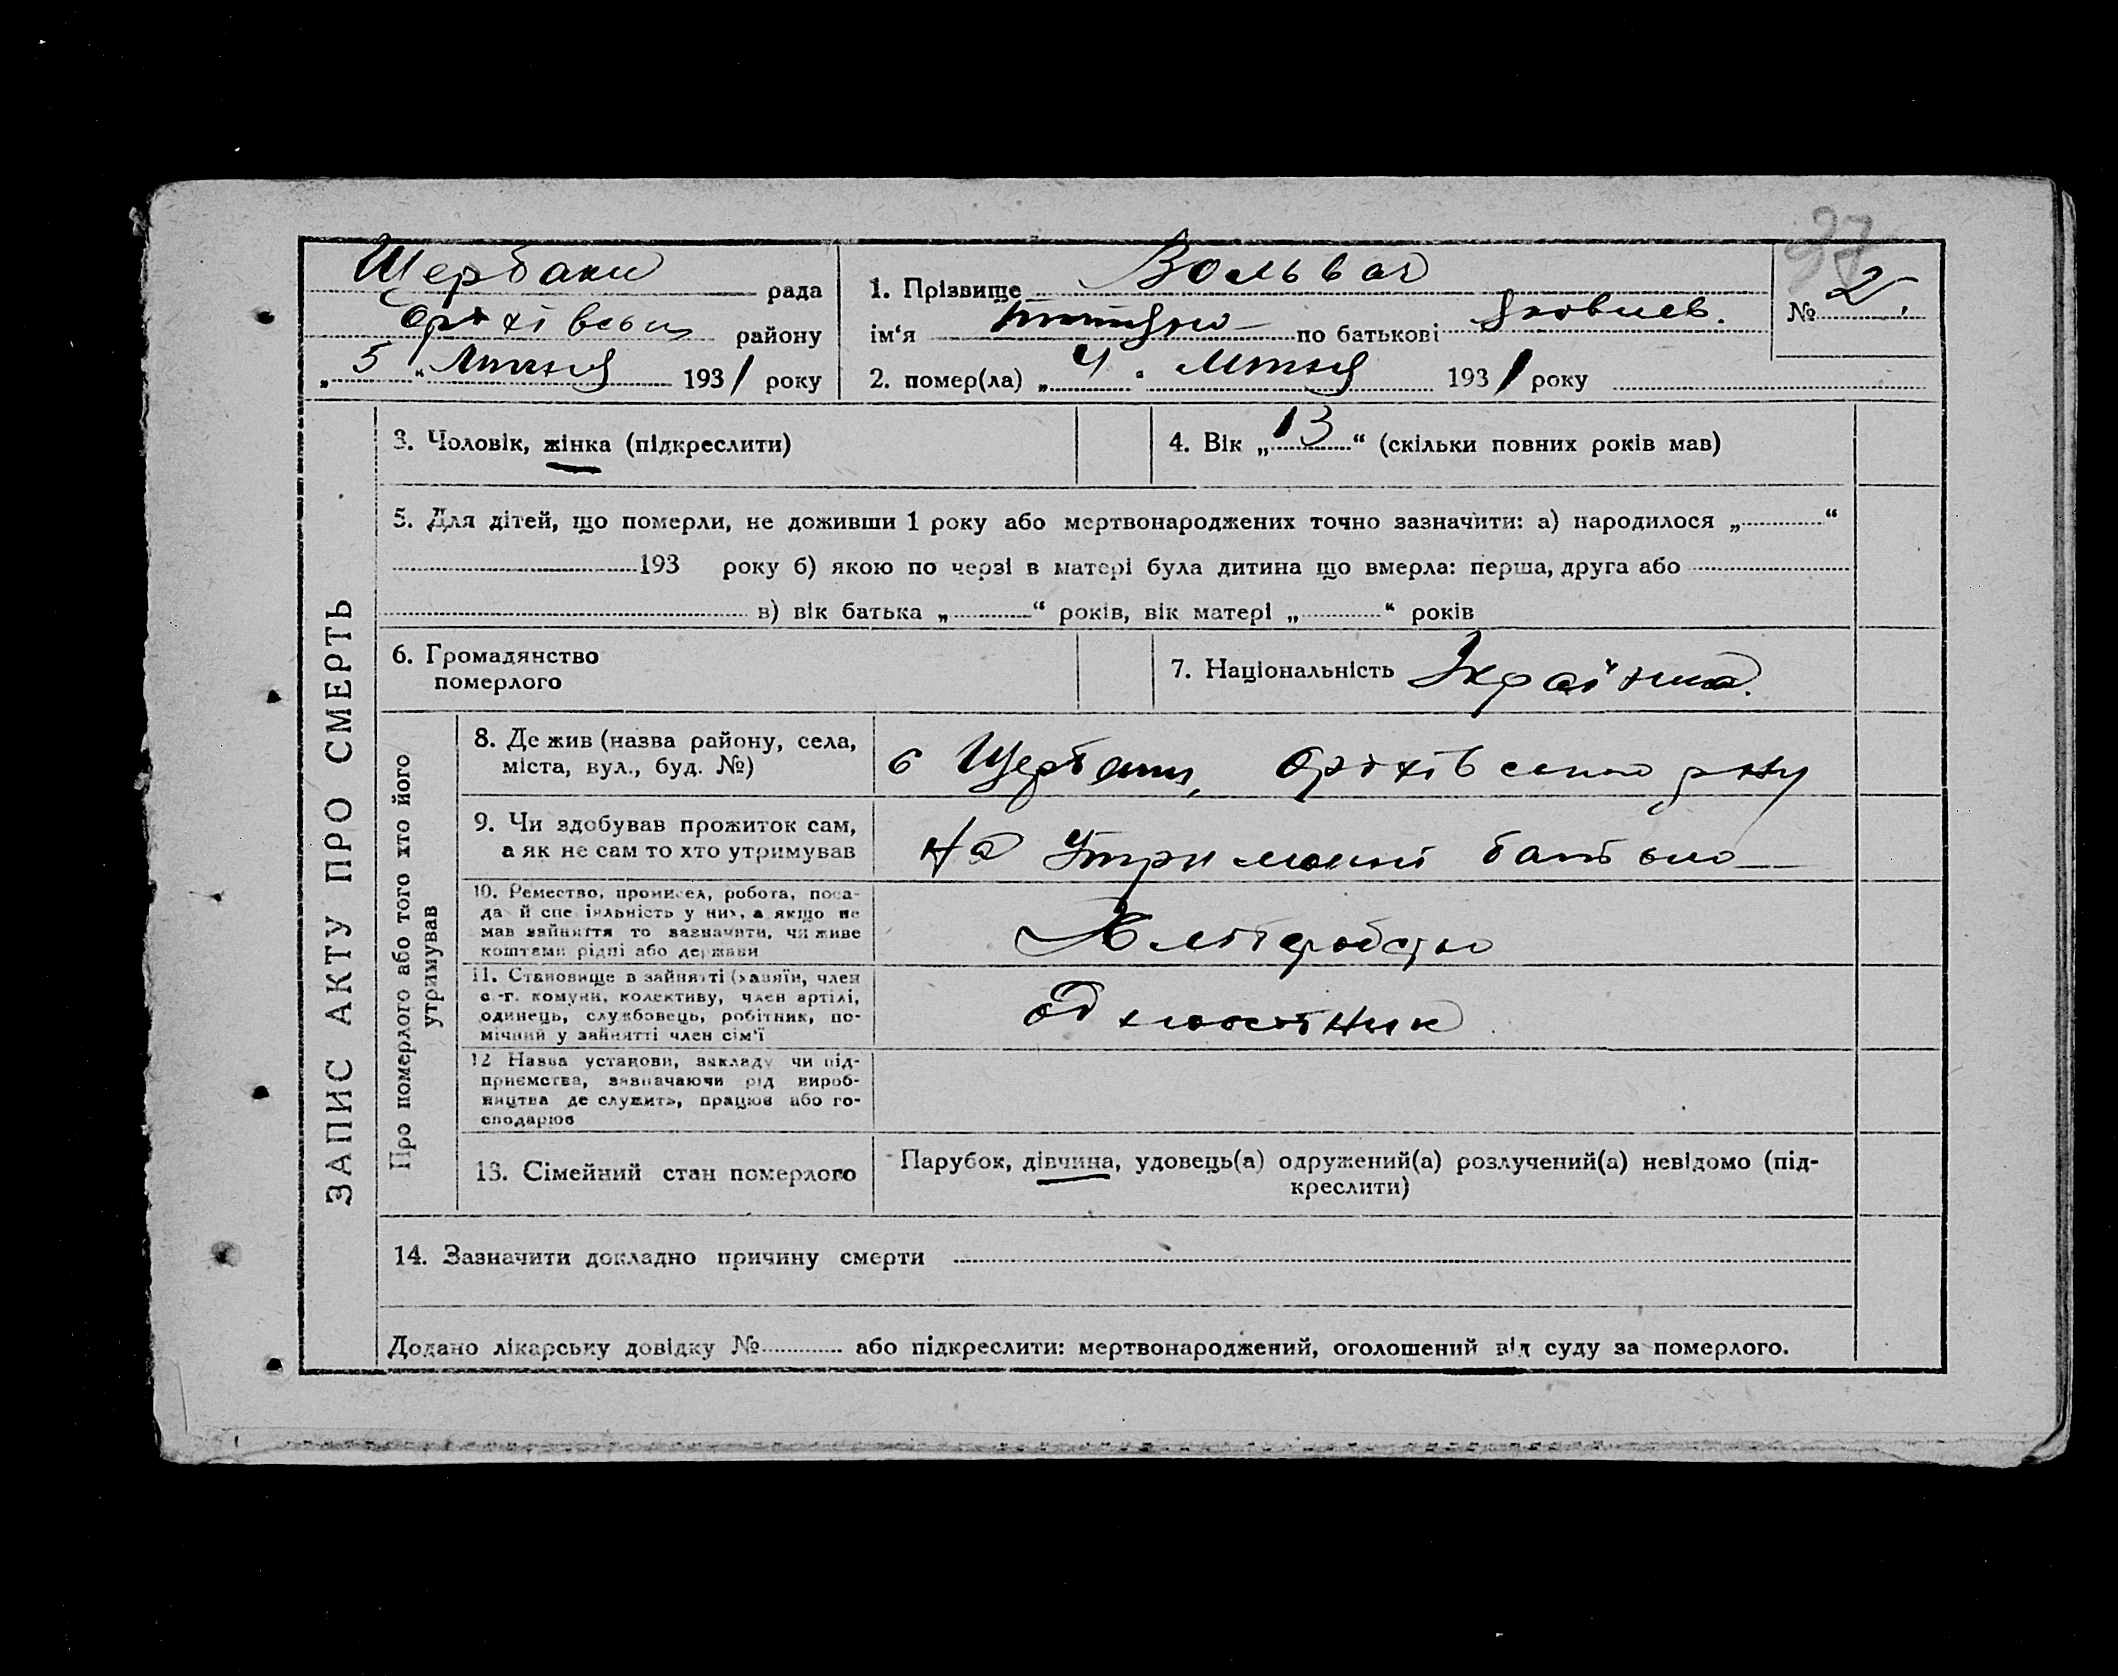 37
Щербаки рада
Оріхівськ району
„ 5 “ Липня 1931 року
1. Прізвище Вольвач
ім‘я по батькові Яковлев.
2. помер(ла) „ 4 “ Липня 1931 року
№ 2
ЗАПИС АКТУ ПРО СМЕРТЬ
3. Чоловік, жінка (підкреслити)
4. Вік „ 13 “ (скільки повних років мав)
5. Для дітей, що померли, не доживши 1 року або мертвонароджених точно зазначити: а) народилося „ “
193 року б) якою по черзі в матері була дитина що вмерла: перша, друга або
в) вік батька „ “ років, вік матері „ “ років
6. Громадянство
померлого
7. Національність Українка.
Про померлого або того хто його
утримував
8. Де жив (назва району, села,
міста, вул., буд. №)
с Щербаки, Оріхівського р-ну
9. Чи здобував прожиток сам,
а як не сам то хто утримував
На утриманні батька
10. Ремество, промисел, робота, поса-
да й спеціяльність у них, а якщо не
мав зайняття то зазначити, чи живе
коштами рідні або держави
Хліборобство
11. Становище в зайнятті (хазяїн, член
с.-г. комуни, колективу, член артілі,
одинець, службовець, робітник, по-
мічний у зайнятті член сім‘ї
Одноосібник
12 Назва установи, закладу чи під-
приємства, зазначаючи рід вироб-
ництва де служить, працює або го-
сподарює
13. Сімейний стан померлого
Парубок, дівчина, удовець(а) одружений(а) розлучений(а) невідомо (під-
креслити)
14. Зазначити докладно причину смерти
Додано лікарську довідку № або підкреслити: мертвонароджений, оголошений від суду за померлого.